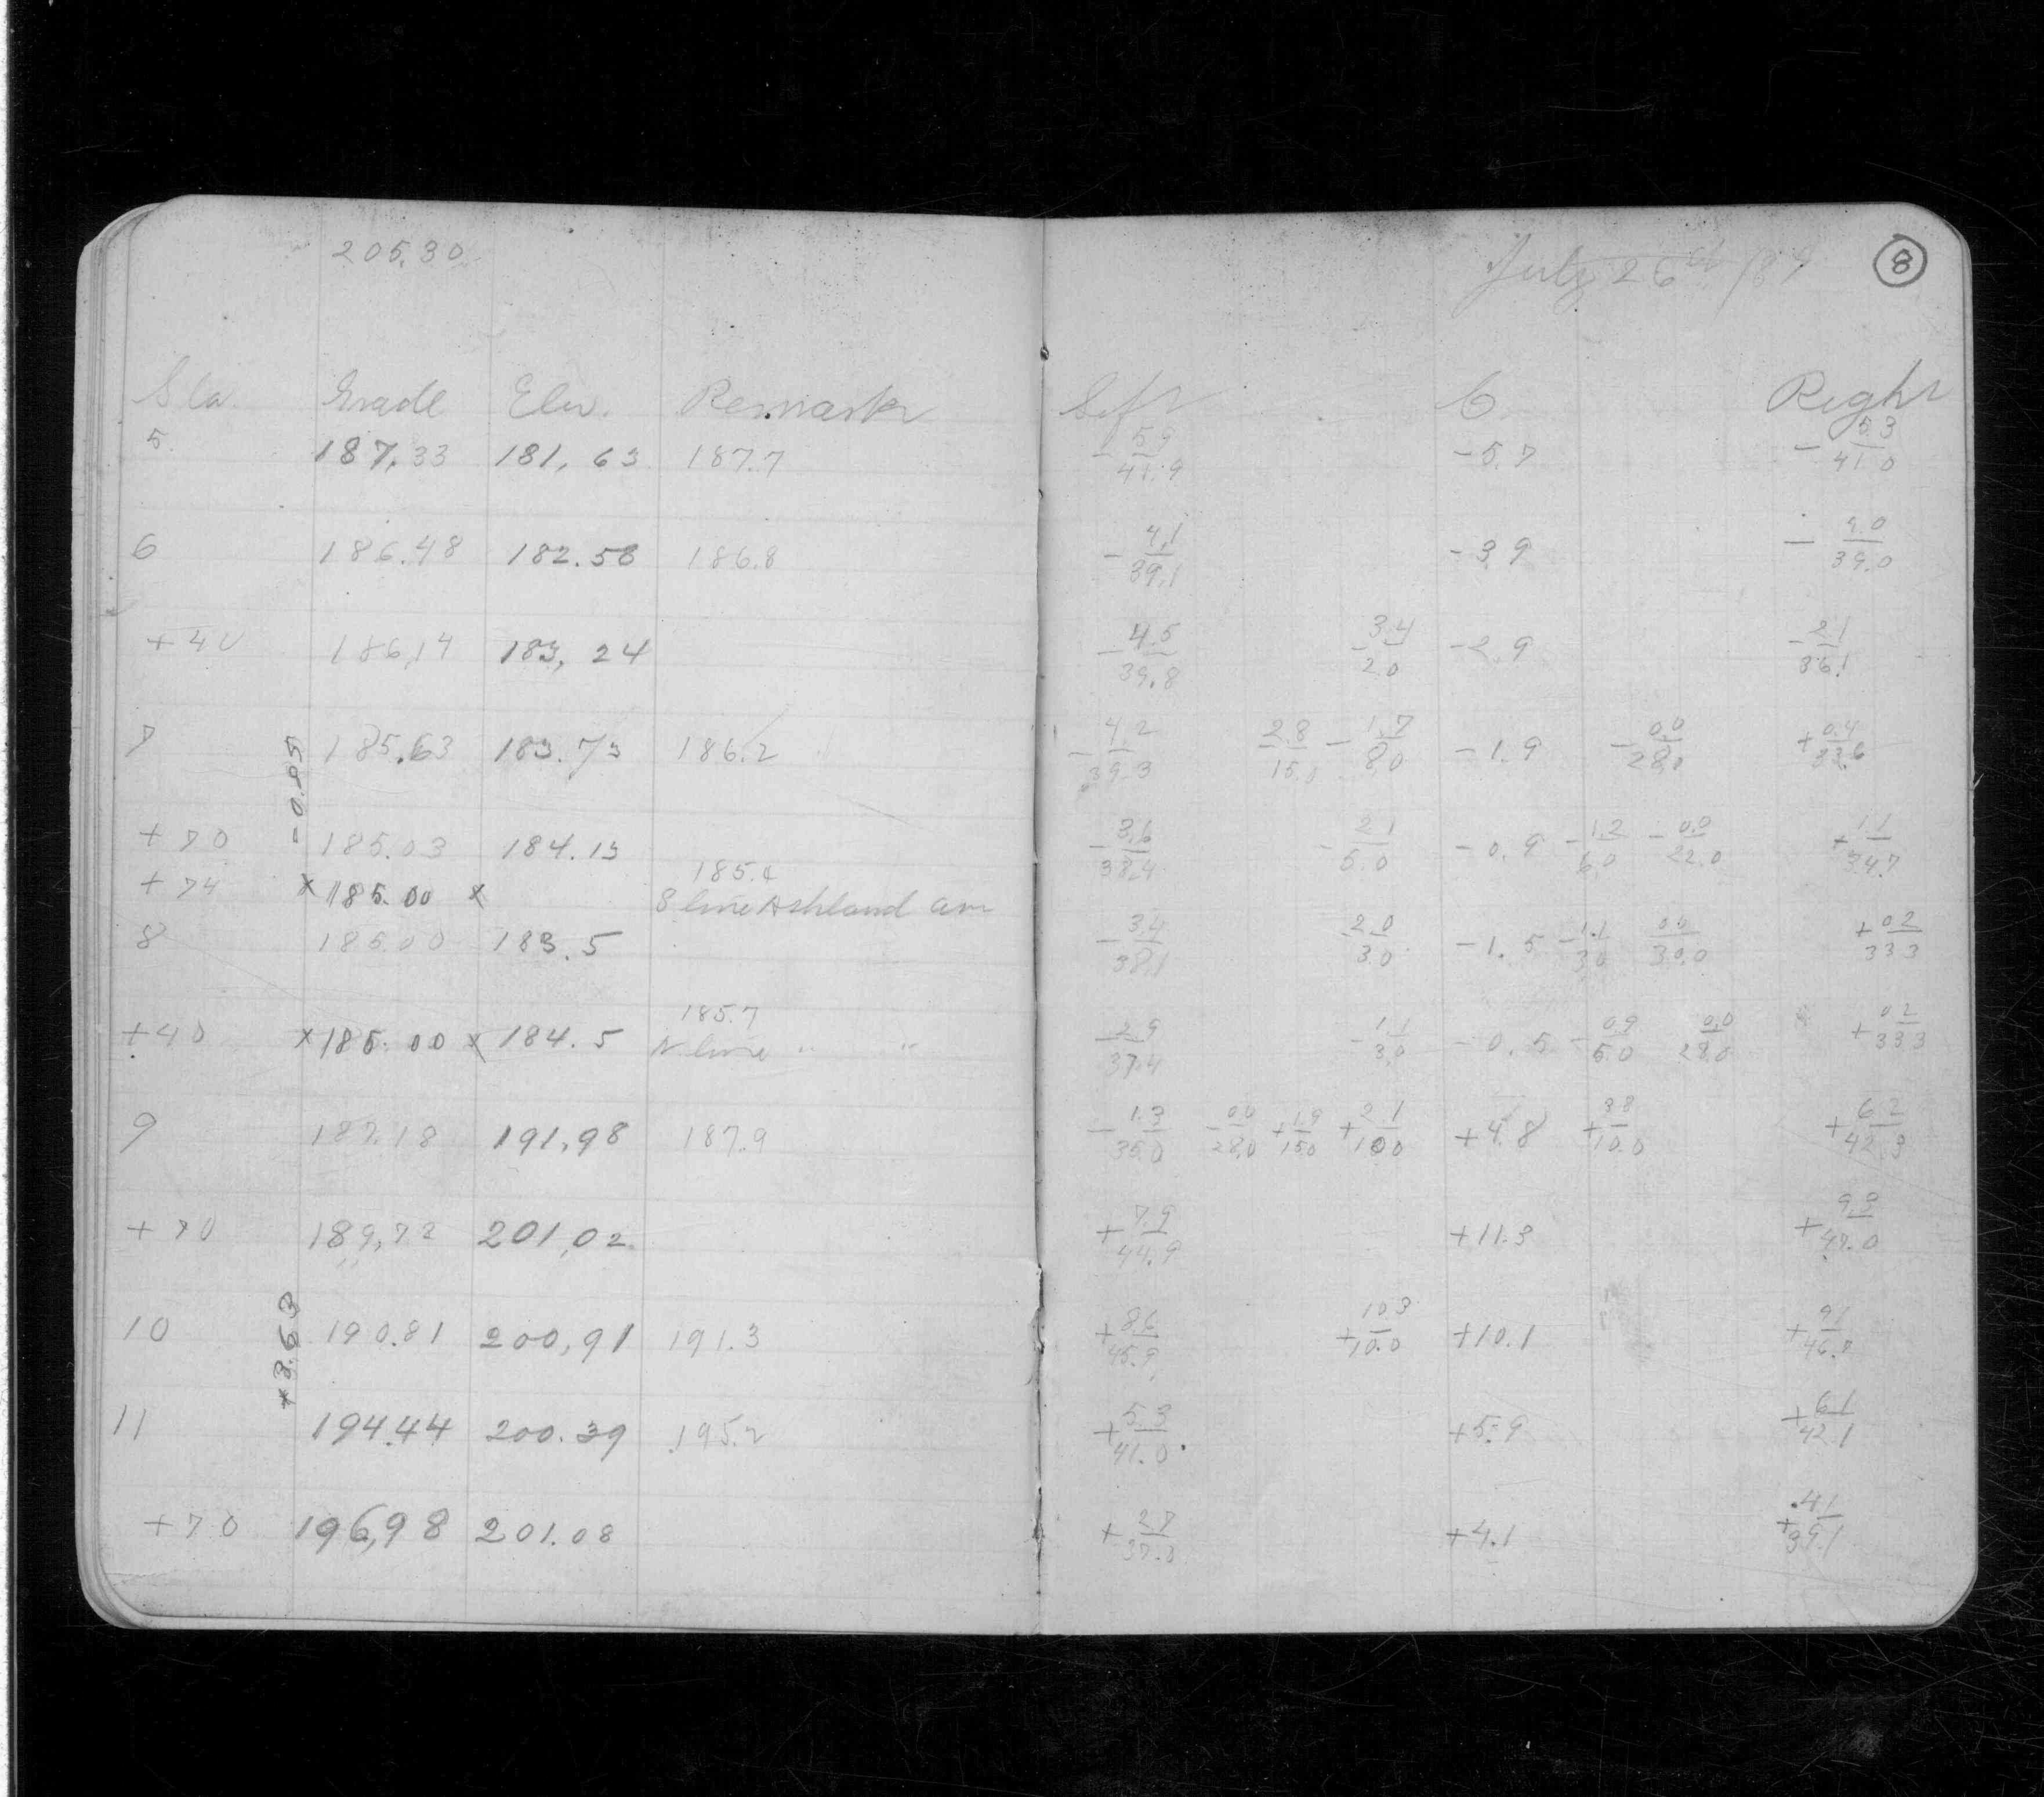 205.30
July 26th /89
8
Sta. Grade Elev. Remarks Left C Right
5 187.33 181.63 187.7 - 5.9/41.9 -5.7 - 5.3/41.0
6 186.48 182.58 186.8 - 4.1/39.1 -3.9 - 4.0/39.0
+40 186.14 183.24 - 4.5/39.8 - 3.4/2.0 -2.9 - 2.1/36.1
7 185.63 183.73 186.2 - 4.2/39.3 - 2.8/15.0 - 1.7/8.0 -1.9 - 0.0/28.0 + 0.4/33.6
-0.85
+70 185.03 184.13 - 3.6/38.4 - 2.1/5.0 -0.9 - 1.2/6.0 - 0.0/22.0 + 1.1/34.7
+74 x 185.00 x 185.4
S line Ashland av
8 185.00 183.5 - 3.4/38.1 - 2.0/3.0 -1.5 - 1.1/3.0 0.0/30.0 + 0.2/33.3
+40 x 185.00 x 184.5 185.7
N. line " " - 2.9/37.4 - 1.1/3.0 -0.5 - 0.9/5.0 0.0/28.0 + 0.2/33.3
9 187.18 191.98 187.9 - 1.3/35.0 - 0.0/28.0 + 1.9/15.0 + 2.1/10.0 +4.8 + 3.8/10.0 + 6.2/42.3
+70 189.72 201.02 + 7.9/44.9 +11.3 + 9.3/47.0
+3.63
10 190.81 200.91 191.3 + 8.6/45.9 + 10.3/10.0 +10.1 + 9.1/46.7
11 194.44 200.39 195.2 + 5.3/41.0 +5.9 + 6.1/42.1
+70 196.98 201.08 + 2.7/37.0 +4.1 + 4.1/39.1